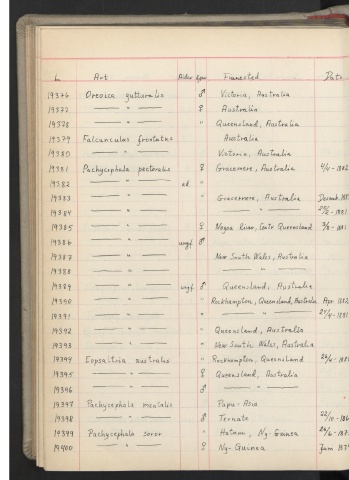 L Art Alder Kjøn Finnested Dato
19376 Oreoica gutturalis ♂ Victoria, Australia
19377 — " — ♀ Australia
19378 — " — " Queensland, Australia
19379 Falcunculus frontatus Australia
19380 — " — Victoria, Australia
19381 Pachycephala pectoralis ♀ Gracemere, Australia 4/4 - 1882
19382 — " — ad "
19383 — " — " Gracemere, Australia Desemb. 188
19384 — " — " — " — 20/2 - 1881
19385 — " — ♀ Nogoa River, Centr Queensland 3/8 - 1881
19386 — " — ungf. ♂
19387 — " — New South Wales, Australia
19388 — " — — " —
19389 — " — ungf. ♂ Queensland, Australia
19390 — " — " Rockhampton, Queensland, Australia Apr. 1882
19391 — " — " — " — 21/9 - 1881
19392 — " — " Queensland, Australia
19393 — " — " New South Wales, Australia
19394 Eopsaltria australis " Rockhampton, Queensland 26/4 - 1881
19395 — " — ♀ Queensland, Australia
19396 — " — ♂ — " —
19397 Pachycephala mentalis " Papu-Asia
19398 — " — ♂ Ternate 22/10 - 186
19399 Pachycephala soror " Hatam, Ny-Guinea 26/6 - 187
19400 — " — ♀ Ny-Guinea Jun 187